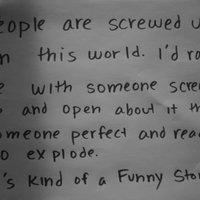 eople are screwed u
n this world. I'd ra
e with someone scre
and open about it th
omeone perfect and read
o explode.
's kind of a Funny Stor